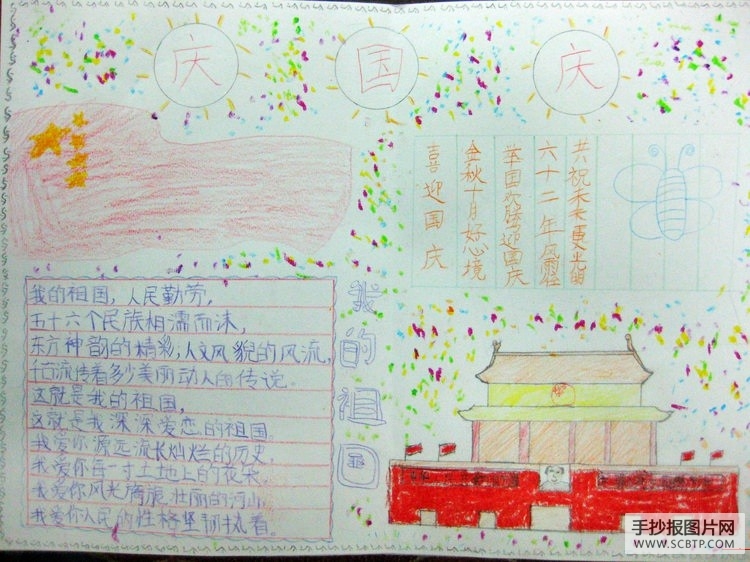 庆 国 庆
喜迎国庆
金秋十月好心境
举国欢腾迎国庆
六十二年风雨
共祝未来更光
我的祖国，人民勤劳，
五十六个民族相濡而沫，
东方神韵的精彩，人文风貌的风流，
千古流传着多少美丽动人的传说。
这就是我的祖国，
这就是我深深爱恋的祖国。
我爱你源远流长灿烂的历史，
我爱你每一寸土地上的花朵，
我爱你风光旖旎壮丽的河山，
我爱你人民的性格坚韧执着。
我的祖国
手抄报图片网
WWW.SCBTP.COM